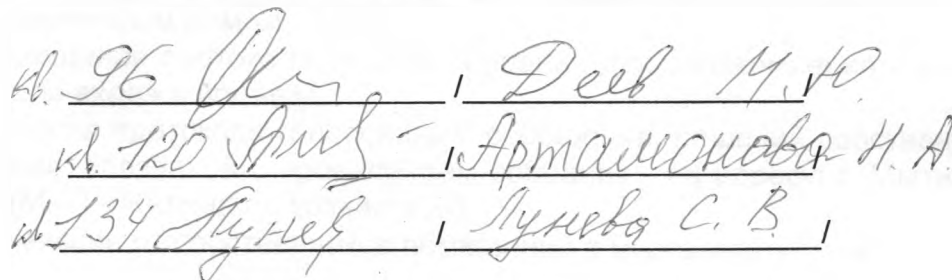 кв. 96 / Деев М.Ю.
кв. 120 / Артамонова Н.А
кв 134 Лунев / Лунева С. В. /